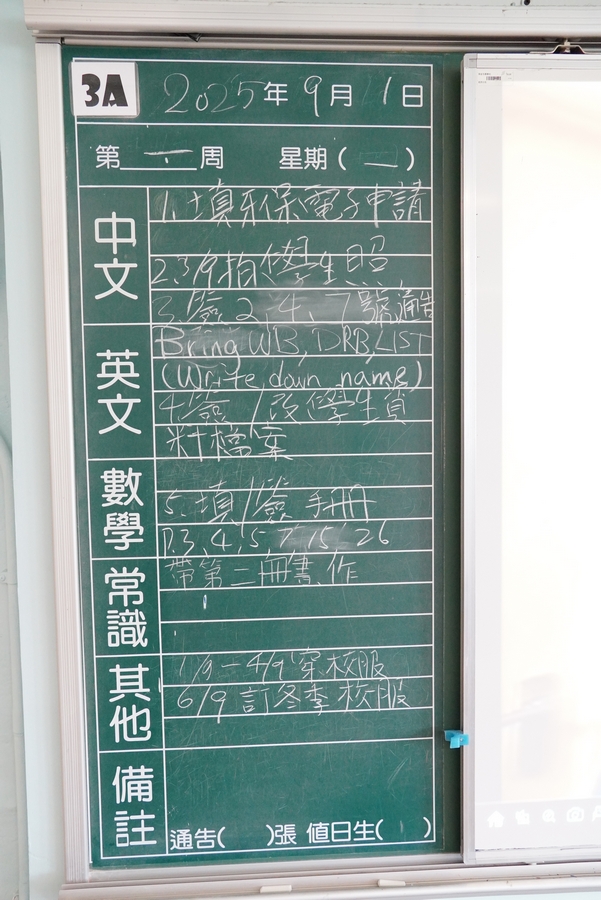 3A
2025年9月1日
第一周 星期(一)
中文
1.填環保電子申請
2.3/9拍學生照
3.簽2、4、7號通告
英文
Bring WB, DRB, LIST
(Write down name)
4.簽/改學生資
料檔案
數學
5.填/簽手冊
P.3,4,5,7,15,26
常識
帶第二冊書、作
其他
1/9-4/9穿校服
6/9訂冬季校服
備註
通告( )張 值日生( )